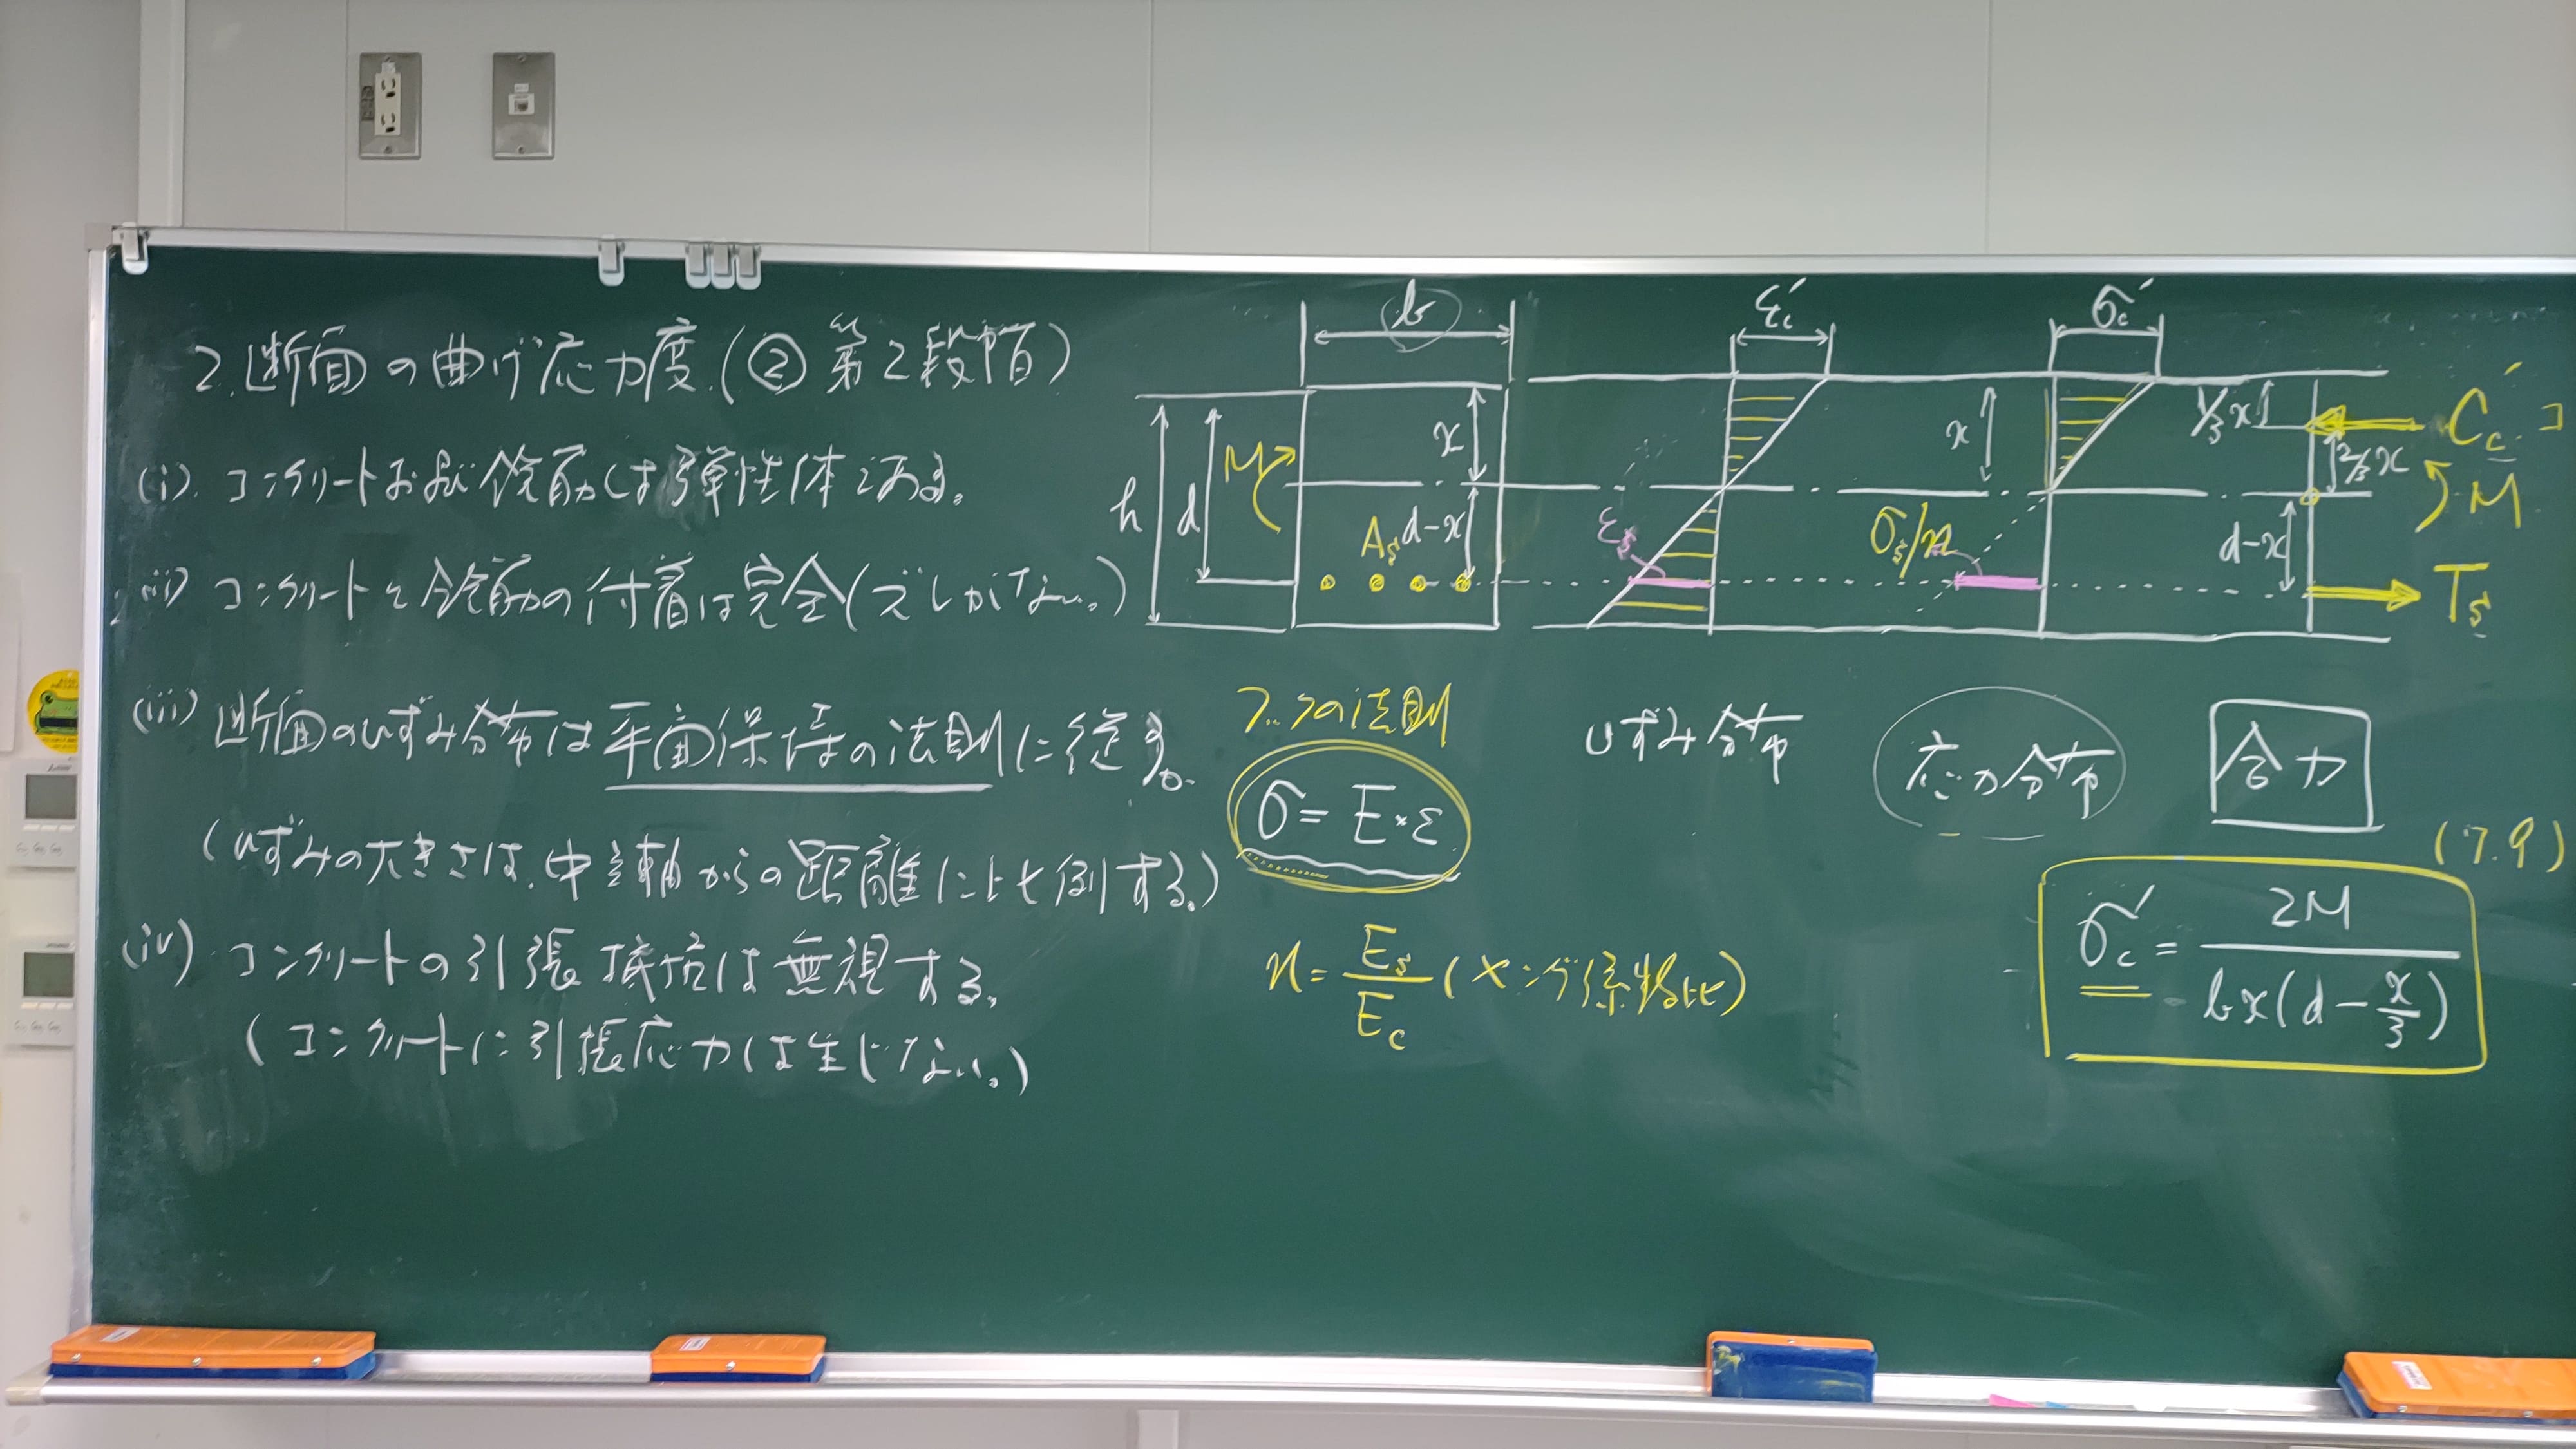 2. 断面の曲げ応力度 (② 第2段階)
(i). コンクリートおよび鉄筋は弾性体である。
(ii) コンクリートと鉄筋の付着は完全(ズレがない。)
(iii) 断面のひずみ分布は平面保持の法則に従う。
(ひずみの大きさは、中立軸からの距離に比例する。)
(iv) コンクリートの引張抵抗は無視する。
(コンクリートに引張応力は生じない。)
b
h
d
M
x
As
d-x
εc'
εs
σc'
x
σs/n
1/3x
2/3x
d-x
Cc'
コ
M
Ts
フックの法則
σ = E×ε
ひずみ分布
応力分布
合力
n = Es/Ec (ヤング係数比)
(7.9)
σc' = 2M/bx(d - x/3)